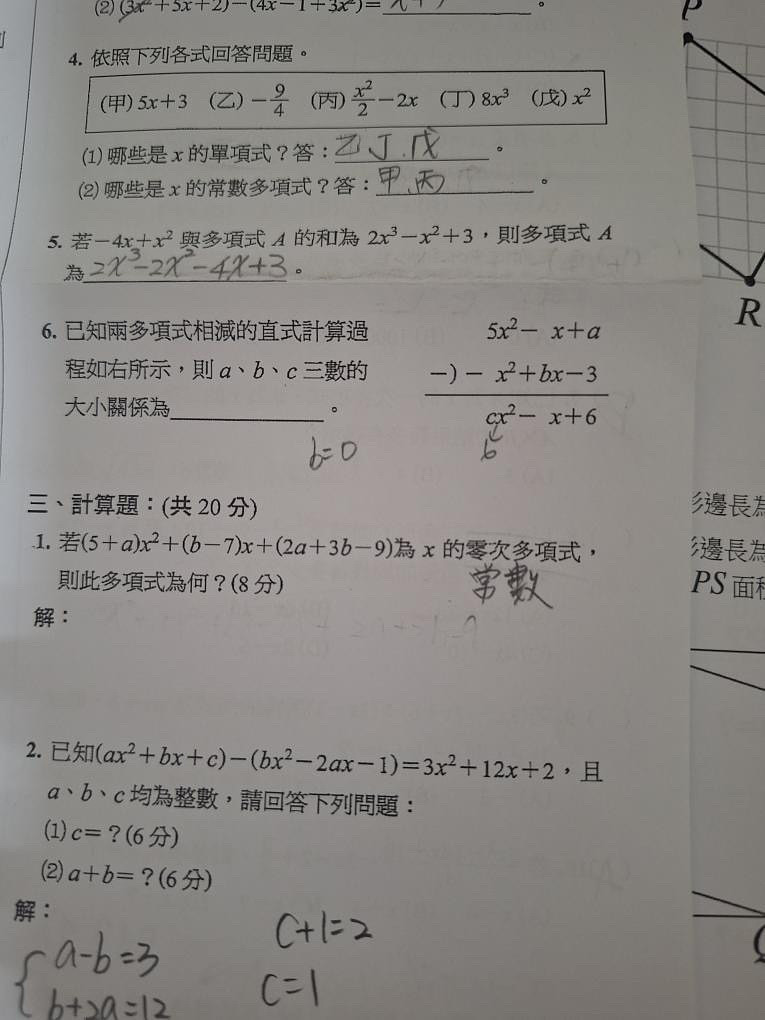 (2) (3x²+5x+2)−(4x−1+3x²)=
4. 依照下列各式回答問題。
(甲) 5x+3 (乙) −9/4 (丙) x²/2−2x (丁) 8x³ (戊) x²
(1) 哪些是 x 的單項式？答：乙丁.戊。
(2) 哪些是 x 的常數多項式？答：甲.丙。
5. 若−4x+x² 與多項式 A 的和為 2x³−x²+3，則多項式 A
為2x³−2x²−4x+3。
6. 已知兩多項式相減的直式計算過
程如右所示，則 a、b、c 三數的
大小關係為。
5x²− x+a
−)− x²+bx−3
cx²− x+6
b
b=0
三、計算題：(共 20 分)
1. 若(5+a)x²+(b−7)x+(2a+3b−9)為 x 的零次多項式，
則此多項式為何？(8 分)
常數
解：
2. 已知(ax²+bx+c)−(bx²−2ax−1)=3x²+12x+2，且
a、b、c 均為整數，請回答下列問題：
(1) c=？(6 分)
(2) a+b=？(6 分)
解：
a−b=3
b+2a=12
C+1=2
C=1
P
R
邊長為
邊長為
PS 面